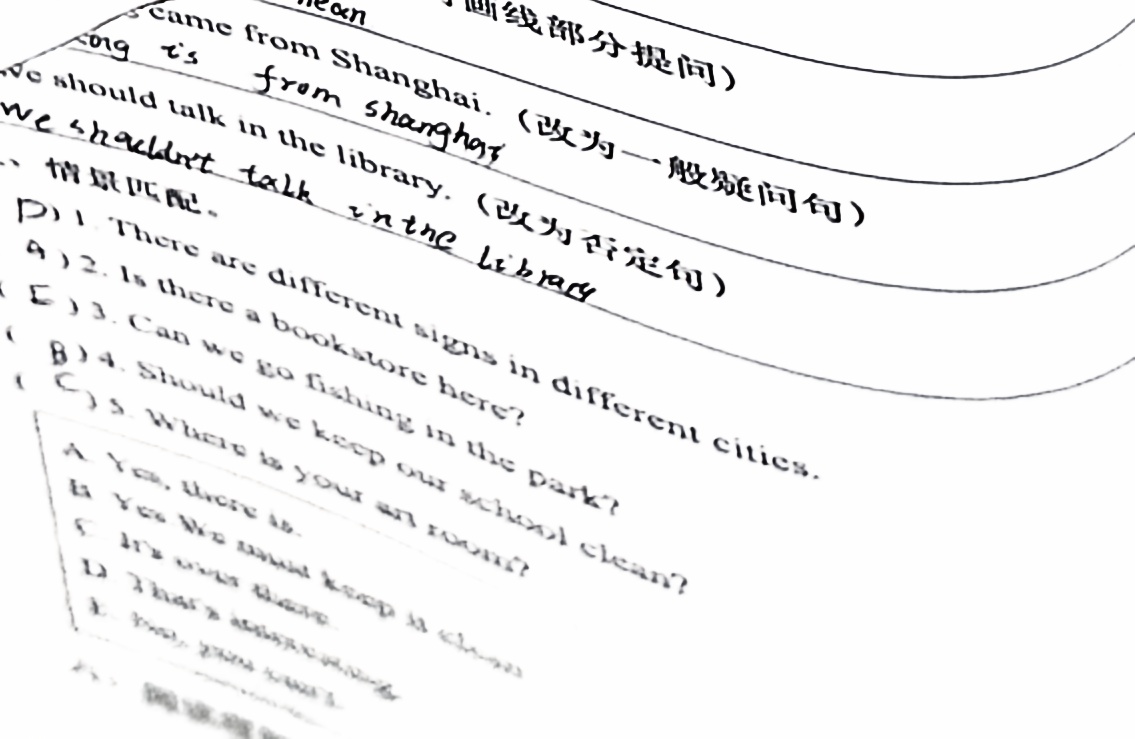 画线部分提问）
came from Shanghai.（改为一般疑问句）
is from shanghai
we should talk in the library.（改为否定句）
we shouldn't talk in the library
情景匹配。
D) 1. There are different signs in different cities.
A) 2. Is there a bookstore here?
( E ) 3. Can we go fishing in the park?
( B ) 4. Should we keep our school clean?
( C ) 5. Where is your art room?
A. Yes, there is.
B. Yes We must keep it clean
C. It's over there.
D. That's interesting
E. No, you can't.